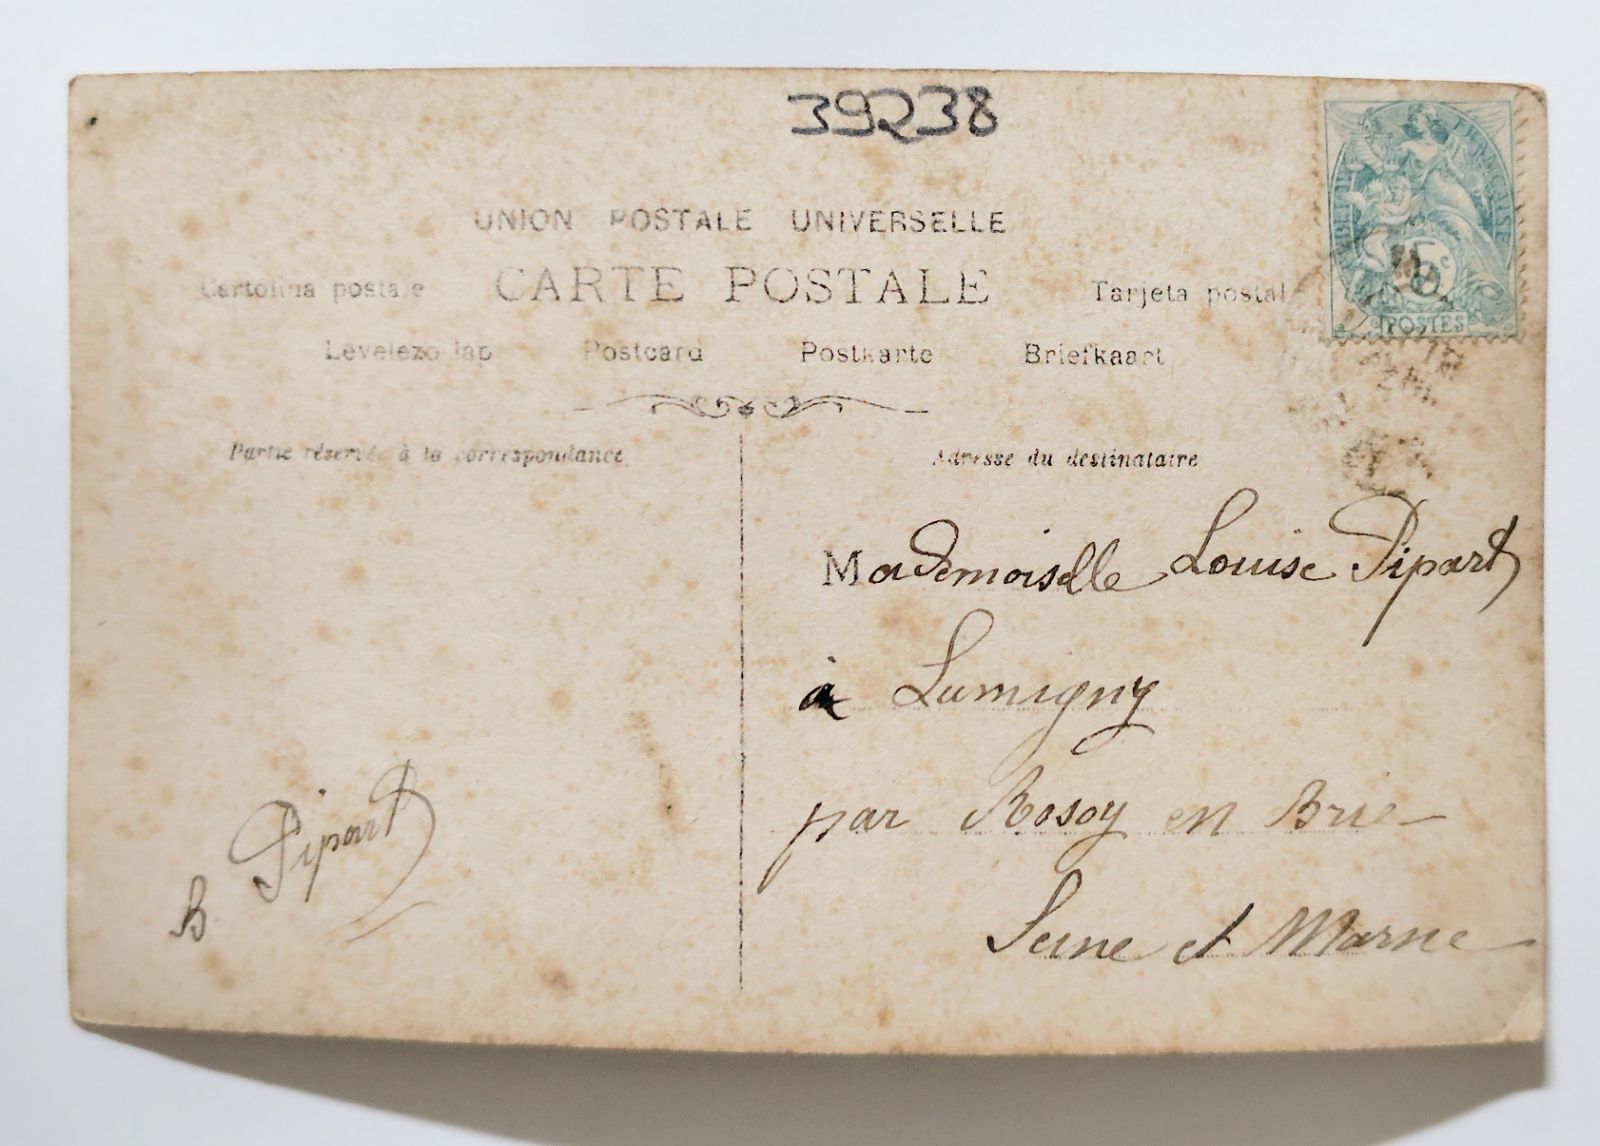 39238
UNION POSTALE UNIVERSELLE
Cartolina postale CARTE POSTALE Tarjeta postal
Levelezo lap Postcard Postkarte Briefkaart
Partie réservée à la correspondance
Adresse du destinataire
RÉPUBLIQUE FRANÇAISE
5c
POSTES
Mademoiselle Louise Pipart
à Lumigny
par Rosoy en Brie
Seine et Marne
B Pipart